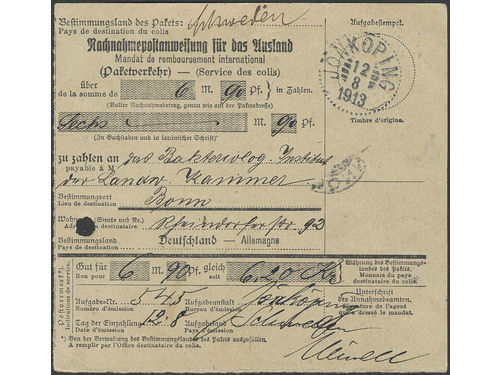 Bestimmungsland des Pakets: Schweden
Pays de destination du colis
Aufgabestempel.
Nachnahmepostanweisung für das Ausland
Mandat de remboursement international
(Paketverkehr) — (Service des colis)
über
de la somme de 6 M. 90 Pf. in Zahlen.
(Voller Nachnahmebetrag, genau wie auf der Paketadresse)
JÖNKÖPING
12
8
1913
Timbre d'origine.
Sechs M. 90 Pf.
(In Buchstaben und in lateinischer Schrift)
zu zahlen an das Bakteriolog. Institut
payable à M
der Landw. Kammer
Bestimmungsort Bonn
Lieu de destination
Wohnung (Straße und Nr.) Rheindorferstr. 93
Bestimmungsland Deutschland — Allemagne
Pays de destination.
Postvermerke.
Indications de service.
Gut für 6 M. 90 Pf. gleich 6,20 Kr
Bon pour soit
Währung des Bestimmungslandes des Pakets.
Monnaie du pays destinataire du colis.
Aufgabe-Nr. 545 Aufgabeanstalt Jönköping
No. d'émission Bureau d'émission
Unterschrift des Annahmebeamten.
Signature de l'agent qui a dressé le mandat.
Tag der Einzahlung 12.8 Aufgabeland Schweden
Date d'émission Pays d'émission
*) Von der Verwaltung des Bestimmungslandes des Pakets auszufüllen.
A remplir par l'Office destinataire du colis.